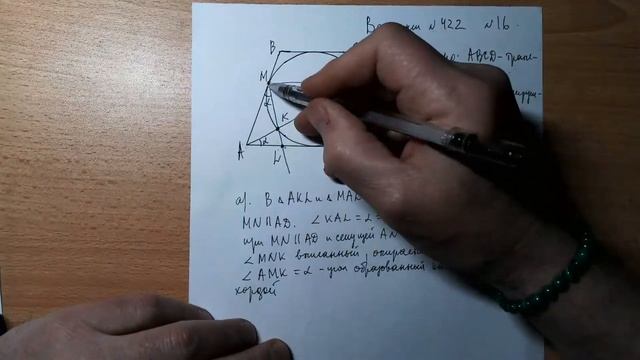 №422 №16
ABCD-трапе-
B
M
K
A
L
а). В △AKL и △MAL
MN || AD. ∠KAL = ∠ =
при MN || AD и секущей AN
∠MNK вписанный,
∠AMK = α - угол образованный
хордой